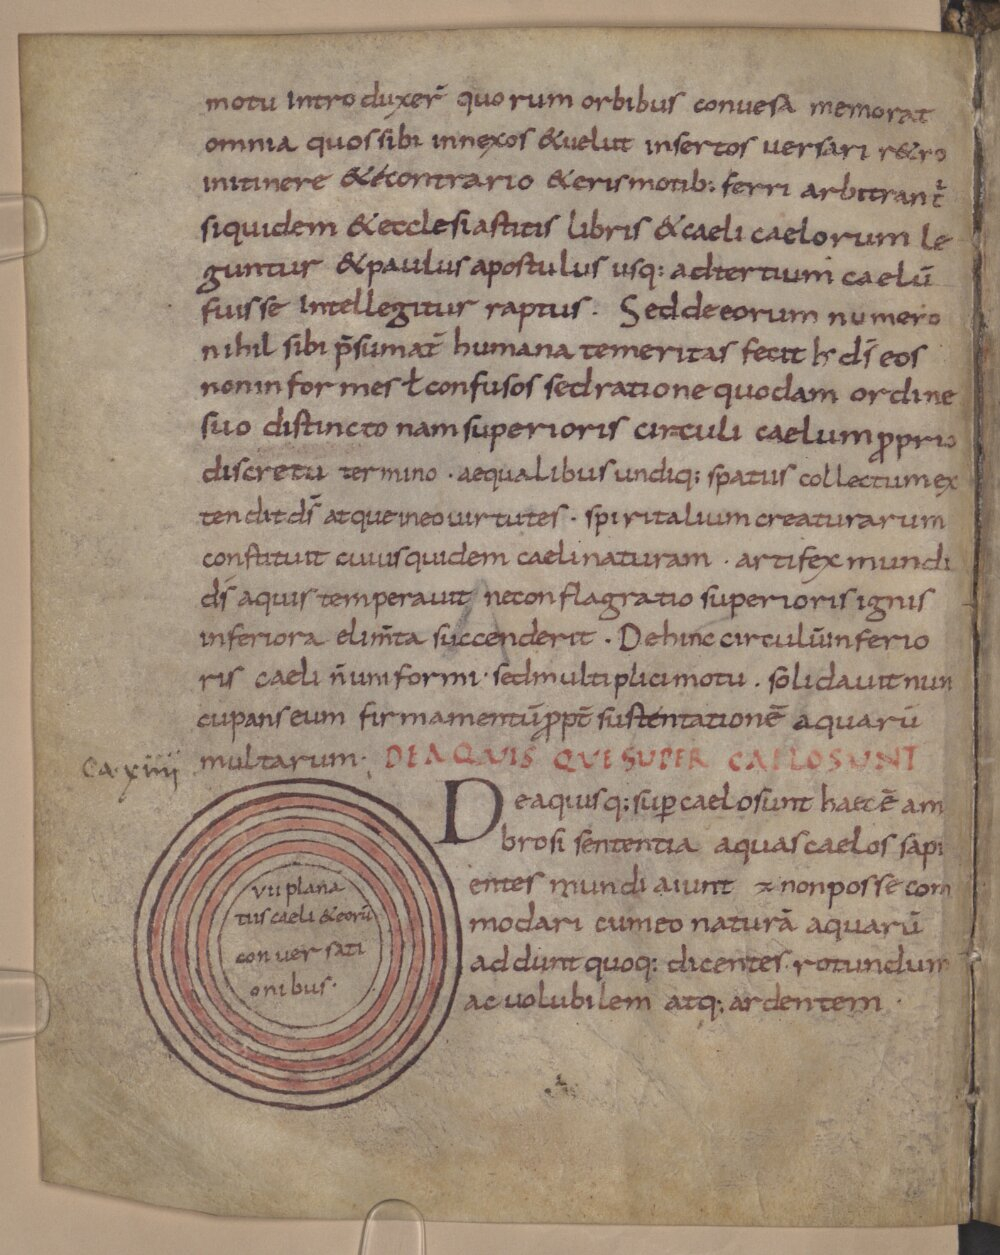 motu introduxer̄ quorum orbibus conuesa memorat
omnia quos sibi innexos &uelut insertos uersari r&ro
initinere &econtrario &cris motib: ferri arbitrant̄
siquidem &ecclesiastitis libris &caeli caelorum le
guntur &paulus apostulus usq: adtertium caelū
fuisse intellegitur raptus. Sed de eorum numero
nihil sibi p̄sumat̄ humana temeritas fecit h̄ d̄s eos
non informes ł confusos sed ratione quodam ordine
suo distincto nam superioris circuli caelum proprio
discretu termino · aequalibus undiq: spatiis collectum ex
tendit d̄s atque in eo uirtutes · spiritalium creaturarum
constituit cuius quidem caeli naturam · artifex mundi
d̄s aquis temperauit ne conflagratio superioris ignis
inferiora elim̄ta succenderet · Dehinc circulū inferio
ris caeli n̄ uniformi · sed multiplici motu · solidauit nun
cupans eum firmamentū ꝓpt̄ sustentationē aquarū
multarum · DE AQUIS QUE SUPER CAELO SUNT
Ca·xiiii
De aquisq: sup caelo sunt haec ē am
brosi sententia aquas caelos sapi
entes mundi aiunt ⁊ non posse com
modari cum eo naturā aquarū
addunt quoq: dicentes rotundum
ac uolubilem atq: ardentem ·
vii plana
tus caeli &eorū
conuersati
onibus·